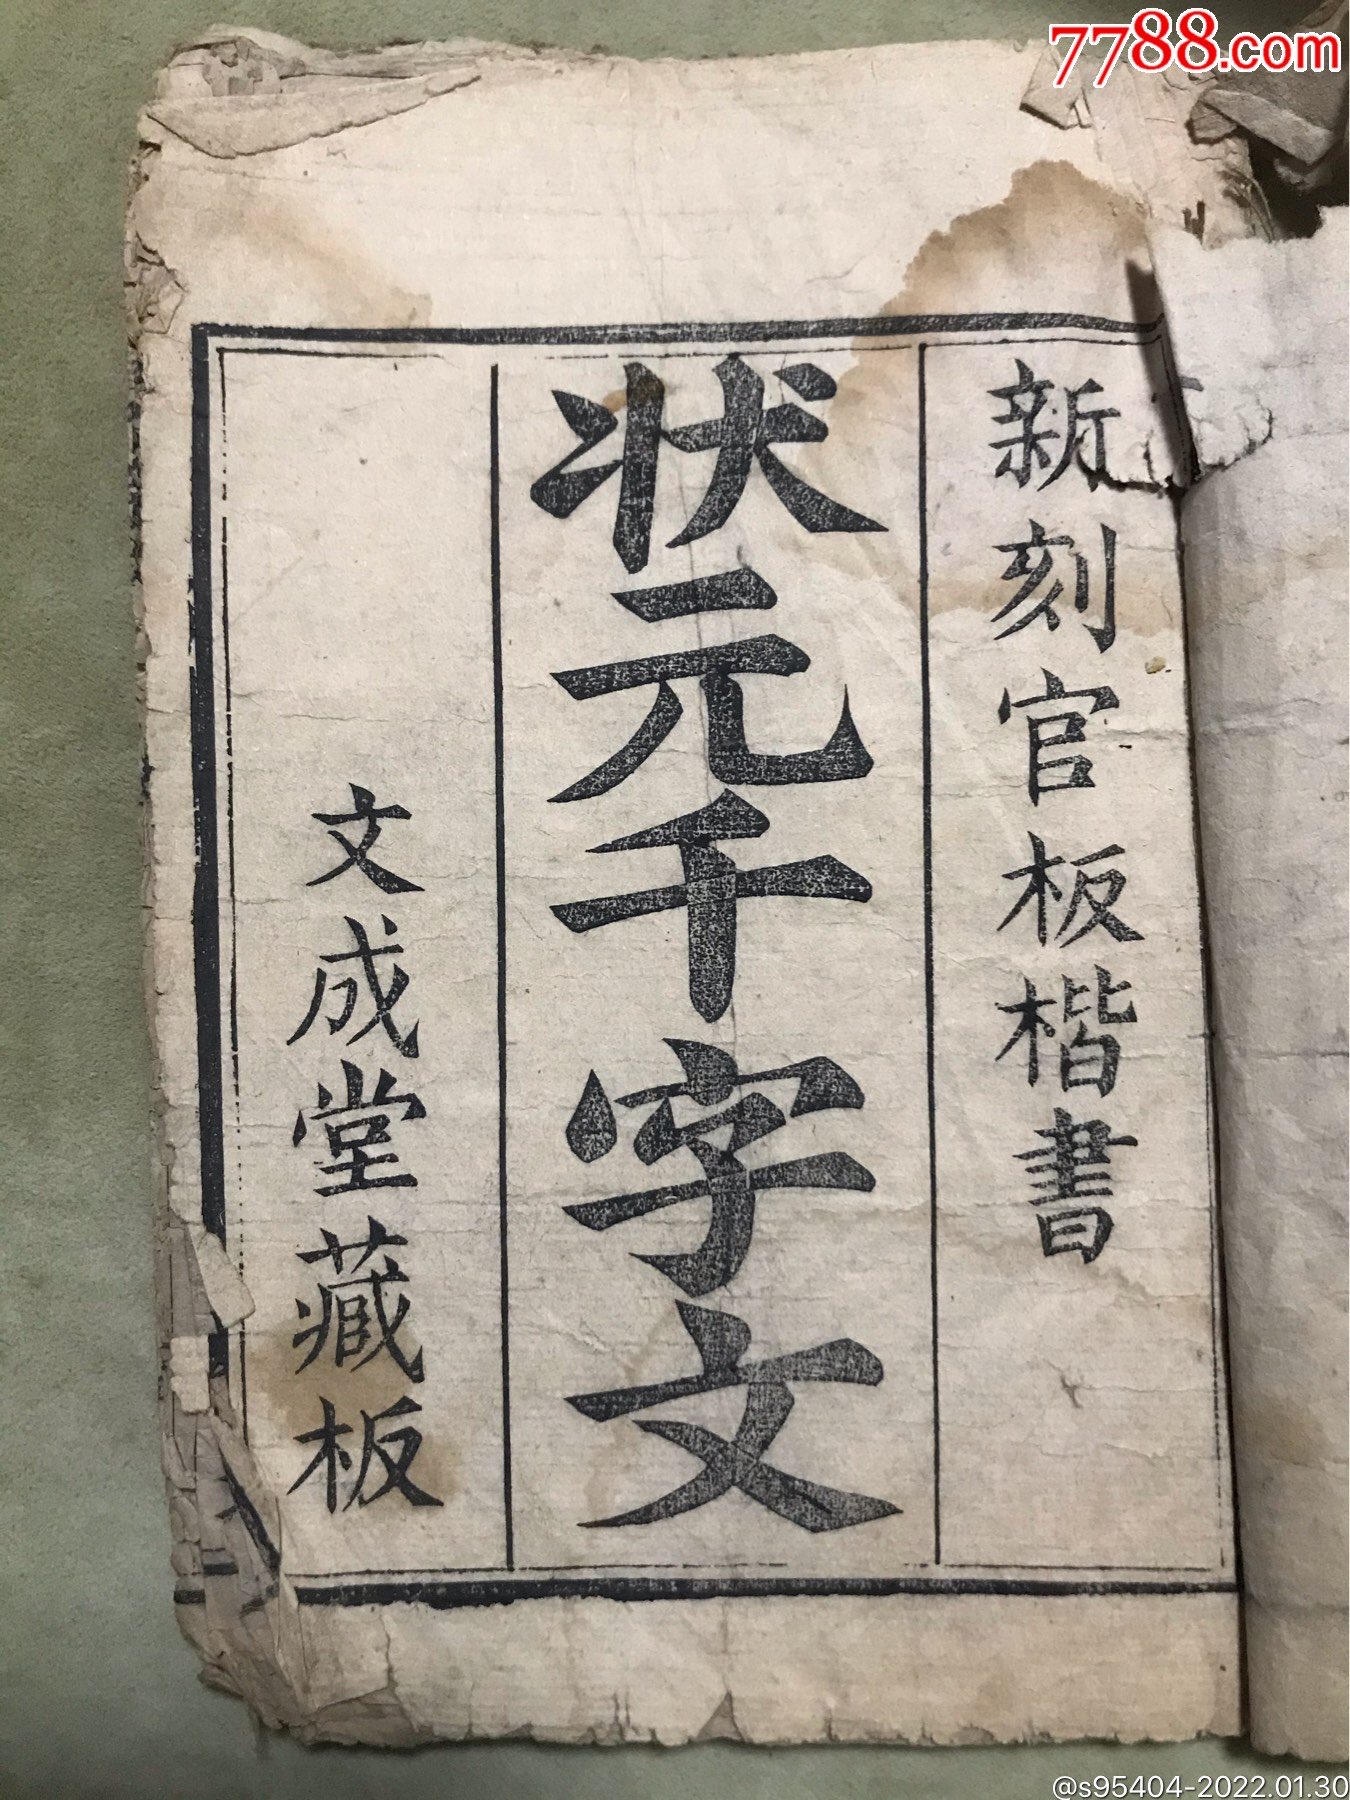 7788.com
新刻官板楷書
状元千字文
文成堂藏板
@s95404-2022.01.30